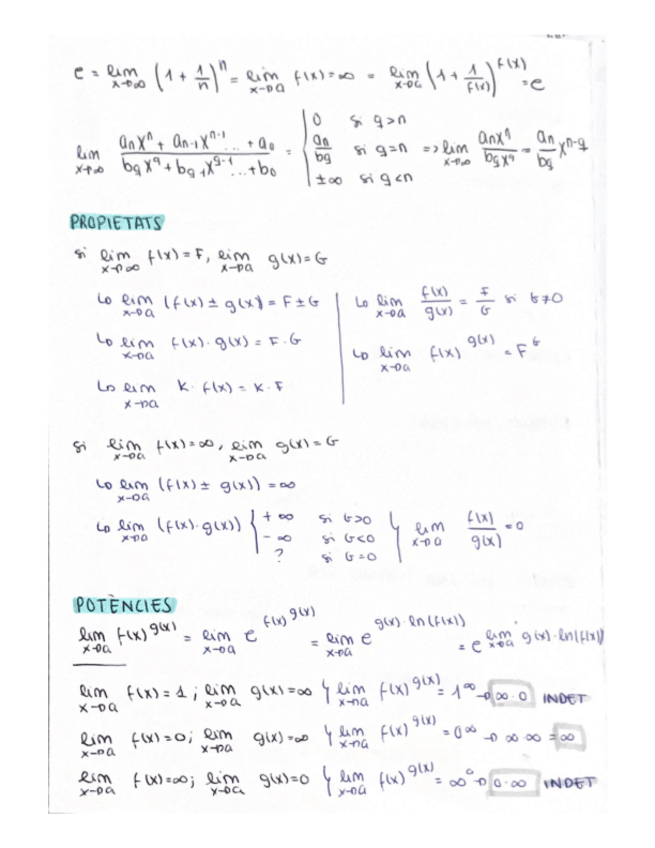 e = lim x→∞ (1 + 1/n)^n = lim x→a f(x) = ∞ = lim x→a (1 + 1/f(x))^f(x) = e
lim x→∞ (anx^n + an-1x^n-1 ... + a0)/(bqx^q + bq-1x^q-1 ... + b0) = { 0 si q>n ; an/bq si q=n ; ±∞ si q<n => lim x→∞ anx^n/bqx^q = an/bq x^n-q
PROPIETATS
si lim x→∞ f(x) = F, lim x→a g(x) = G
↳ lim x→a (f(x) ± g(x)) = F ± G | ↳ lim x→a f(x)/g(x) = F/G si G≠0
↳ lim x→a f(x) · g(x) = F · G | ↳ lim x→a f(x)^g(x) = F^G
↳ lim x→a K · f(x) = K · F
si lim x→a f(x) = ∞, lim x→a g(x) = G
↳ lim x→a (f(x) ± g(x)) = ∞
↳ lim x→a (f(x) · g(x)) { +∞ si G>0 ; -∞ si G<0 ; ? si G=0 } lim x→a f(x)/g(x) = 0
POTÈNCIES
lim x→a f(x)^g(x) = lim x→a e^f(x)^g(x) = lim x→a e^g(x) · ln(f(x)) = e^lim x→a g(x) · ln(f(x))
lim x→a f(x) = 1 ; lim x→a g(x) = ∞ } lim x→a f(x)^g(x) = 1^∞ → ∞ · 0 INDET
lim x→a f(x) = 0; lim x→a g(x) = ∞ } lim x→a f(x)^g(x) = 0^∞ → ∞ · ∞ = ∞
lim x→a f(x) = ∞; lim x→a g(x) = 0 } lim x→a f(x)^g(x) = ∞^0 → 0 · ∞ INDET